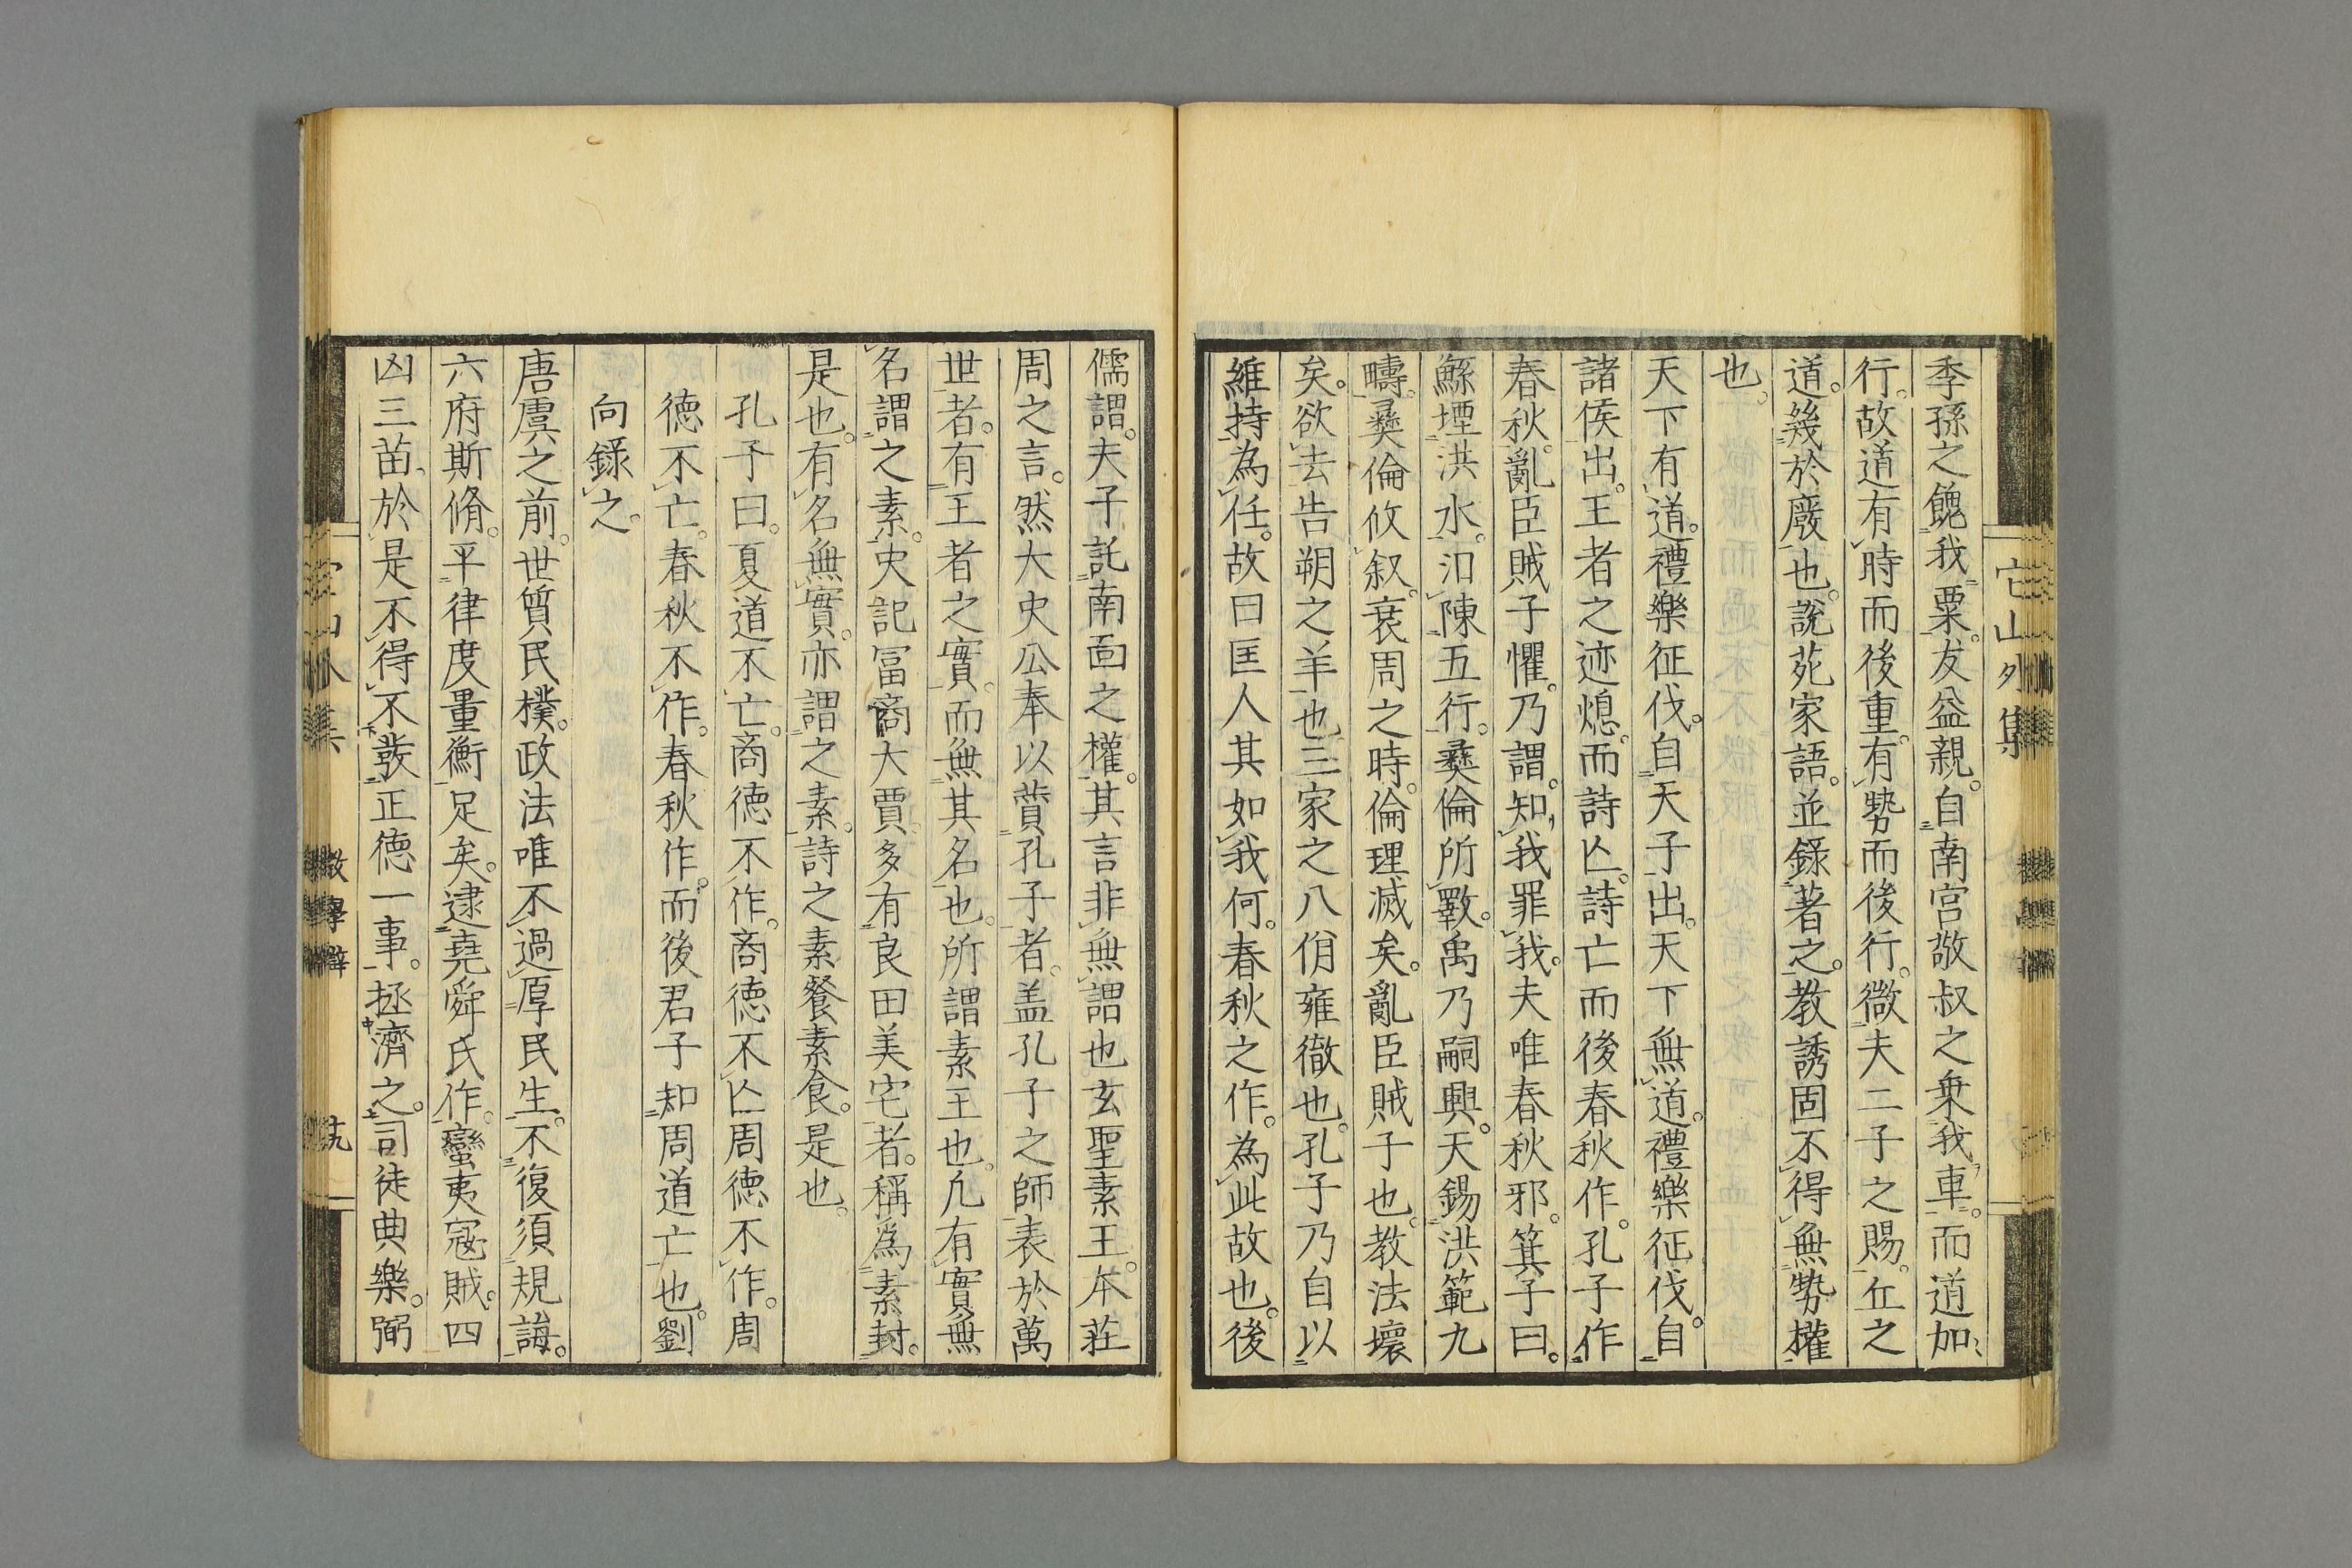 它山外集
季孫之餽我粟。友益親。自南宮敬叔之乗我車。而道加
行。故道有時而後重。有勢而後行。微夫二子之賜。丘之
道。幾於廢也。說苑家語。並錄著之。教誘固不得無勢權
也。
天下有道。禮樂征伐。自天子出。天下無道。禮樂征伐。自
諸侯出。王者之迹熄。而詩亾。詩亡而後春秋作。孔子作
春秋。亂臣賊子懼。乃謂。知我罪我。夫唯春秋邪。箕子曰。
鯀堙洪水。汩陳五行。彝倫所斁。禹乃嗣興。天錫洪範九
疇。彝倫攸叙。衰周之時。倫理滅矣。亂臣賊子也。教法壞
矣。欲去告朔之羊也。三家之八佾雍徹也。孔子乃自以
維持為任。故曰匡人其如我何。春秋之作。為此故也。後
儒謂。夫子託南面之權。其言非無謂也玄聖素王。本荘
周之言。然大史公奉以賛孔子者。盖孔子之師表於萬
世者。有王者之實。而無其名也。所謂素王也。凢有實無
名謂之素。史記冨商大賈多有良田美宅者。稱爲素封。
是也。有名無實。亦謂之素。詩之素餐素食。是也。
孔子曰。夏道不亡。商德不作。商德不亾周德不作。周
德不亡。春秋不作。春秋作。而後君子知周道亡也。劉
向錄之。
唐虞之前。世質民樸。政法唯不過厚民生。不復須規誨。
六府斯脩。平律度量衡足矣。逮堯舜氏作。蠻夷寇賊。四
凶三苗、於是不得不發正徳一事。拯濟之。司徒典樂。弼
教學辯